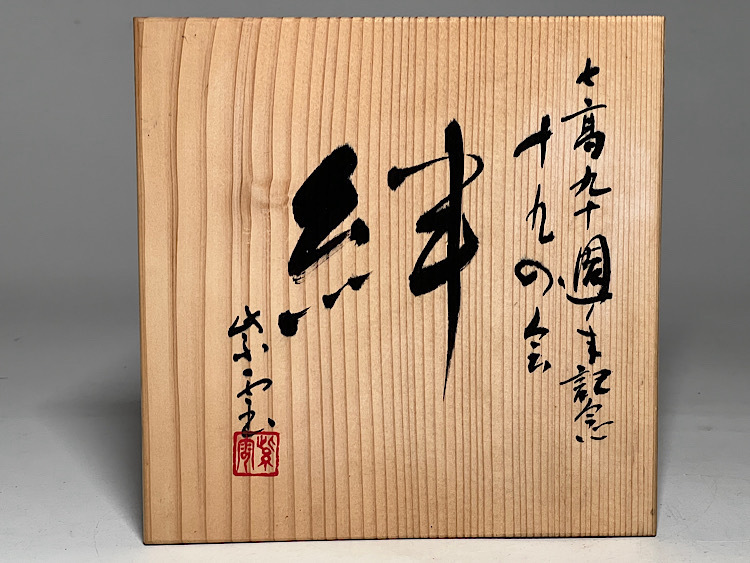 七高九十周年記念
十九の会
絆
紫雲